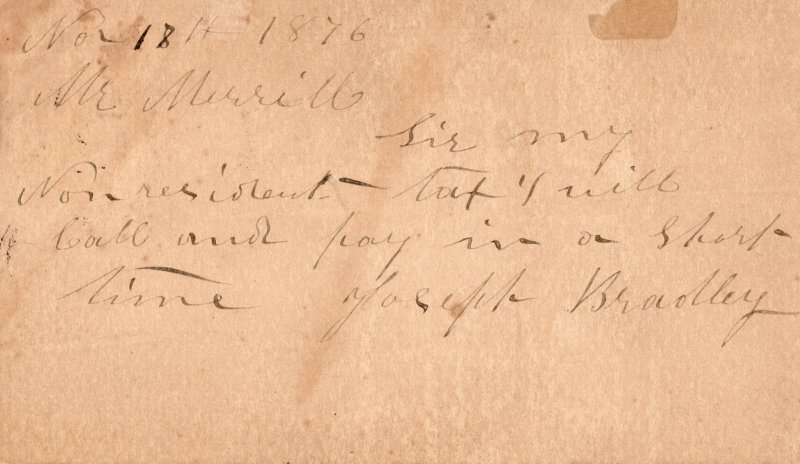 Nov 18th 1876
Mr Merrill
Sir my
Nonresident tax I will
Call and pay in a short
time Joseph Bradley